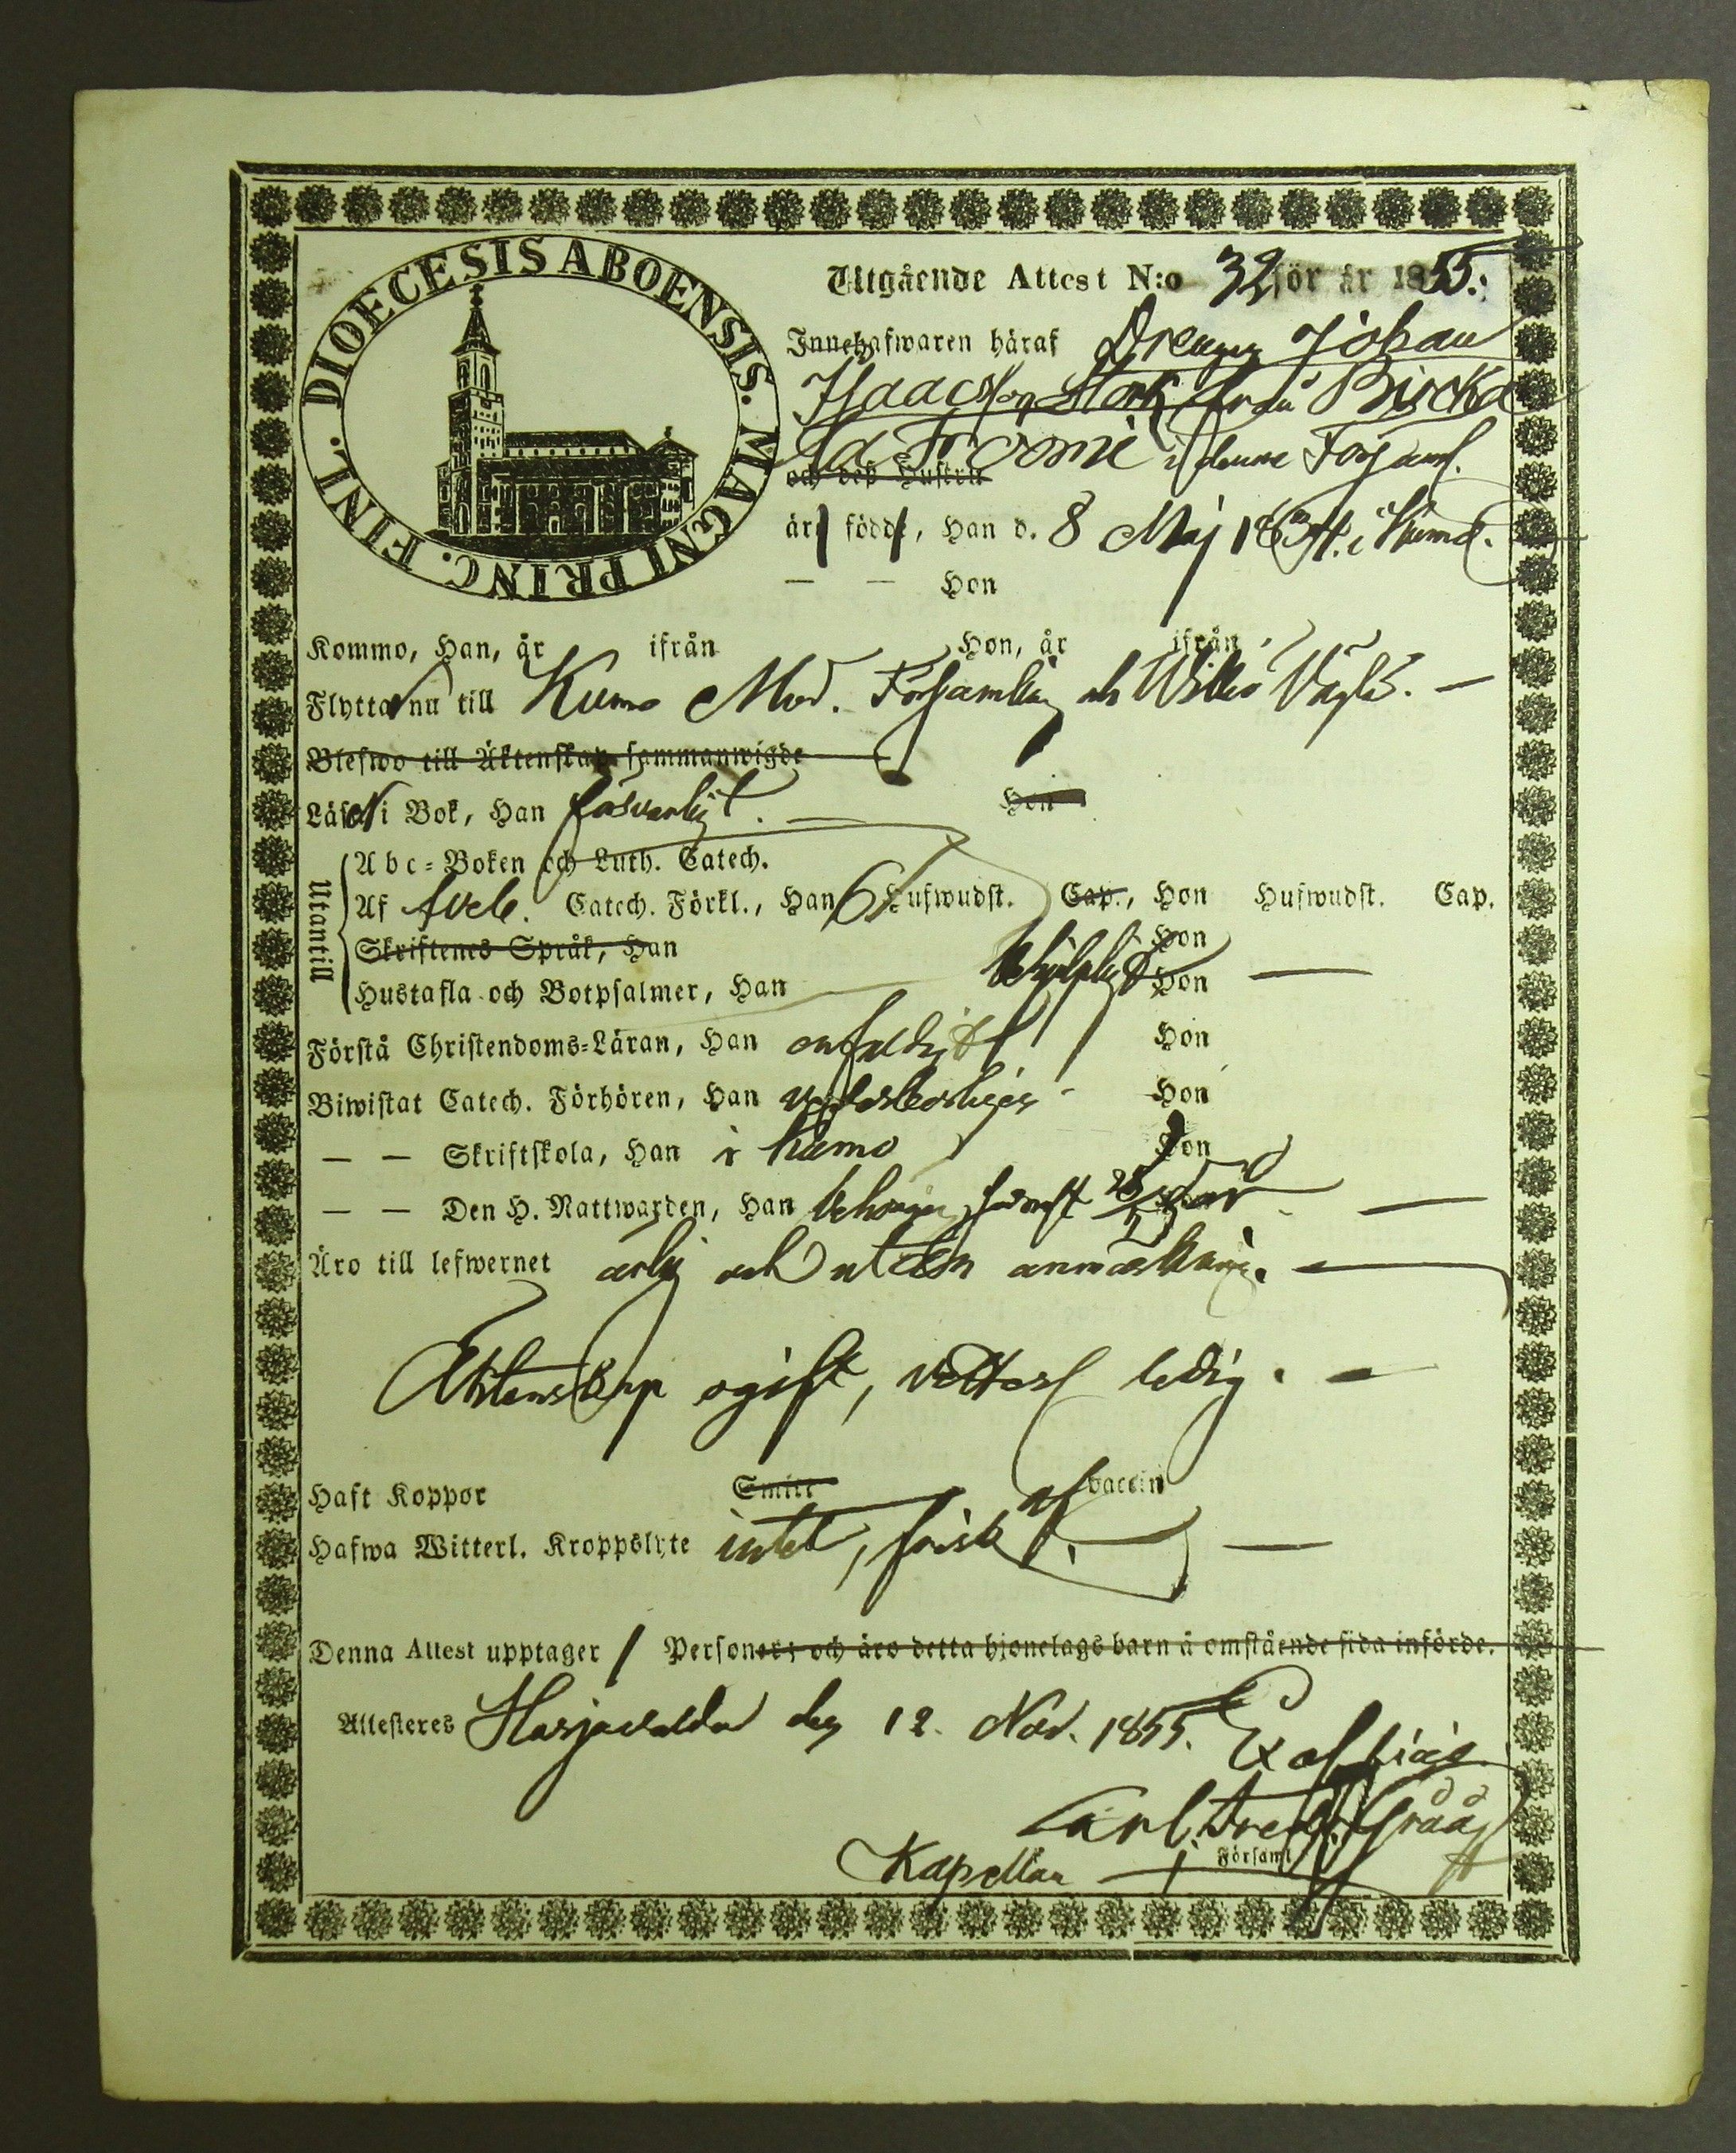 DIOECESIS ABOENSIS. MAGNI PRINC. FINL.
Utgående Attest N:o 32 för år 1855.
Innehafwaren häraf Drengen Johan
Isaacsson Stark från Pirckå
och deß Hustru i denna Församl.
äro födde, Han d. 8 Maj 1834. i Kumo.
— — Hon
Kommo, Han, år ifrån Hon, år ifrån
Flyttar nu till Kumo Mod. Församling och Wilko
Blefwo till Äktenskap sammanwigde
Läser i Bok, Han försvarligt. — Hon
Utantill
Abc-Boken och Luth. Catech.
Af Sveb. Catech. Förkl., Han 6 Hufwudst. Cap., Hon Hufwudst. Cap.
Skriftenes Språk, Han Hon
Hustafla och Botpsalmer, Han hjelpligt Hon —
Förstå Christendoms-Läran, Han enfaldigt Hon
Biwistat Catech. Förhören, Han Hon
— — Skriftskola, Han i Kumo Hon
— — Den H. Nattwarden, Han behörigen, senast —
Äro till lefwernet ärlig och utan anmärkning. —
Äktenskap ogift, veterl ledig. —
Haft Koppor Smitt af vaccin
Hafwa Witterl. Kroppslyte intet, frisk. —
Denna Attest upptager 1 Personer; och äro detta hjonelags barn å omstående sida införde.
Attesteres Harjavalda den 12. Nov. 1855. Ex officio
Carl Fredr. Gråå
Kapellan i Församl